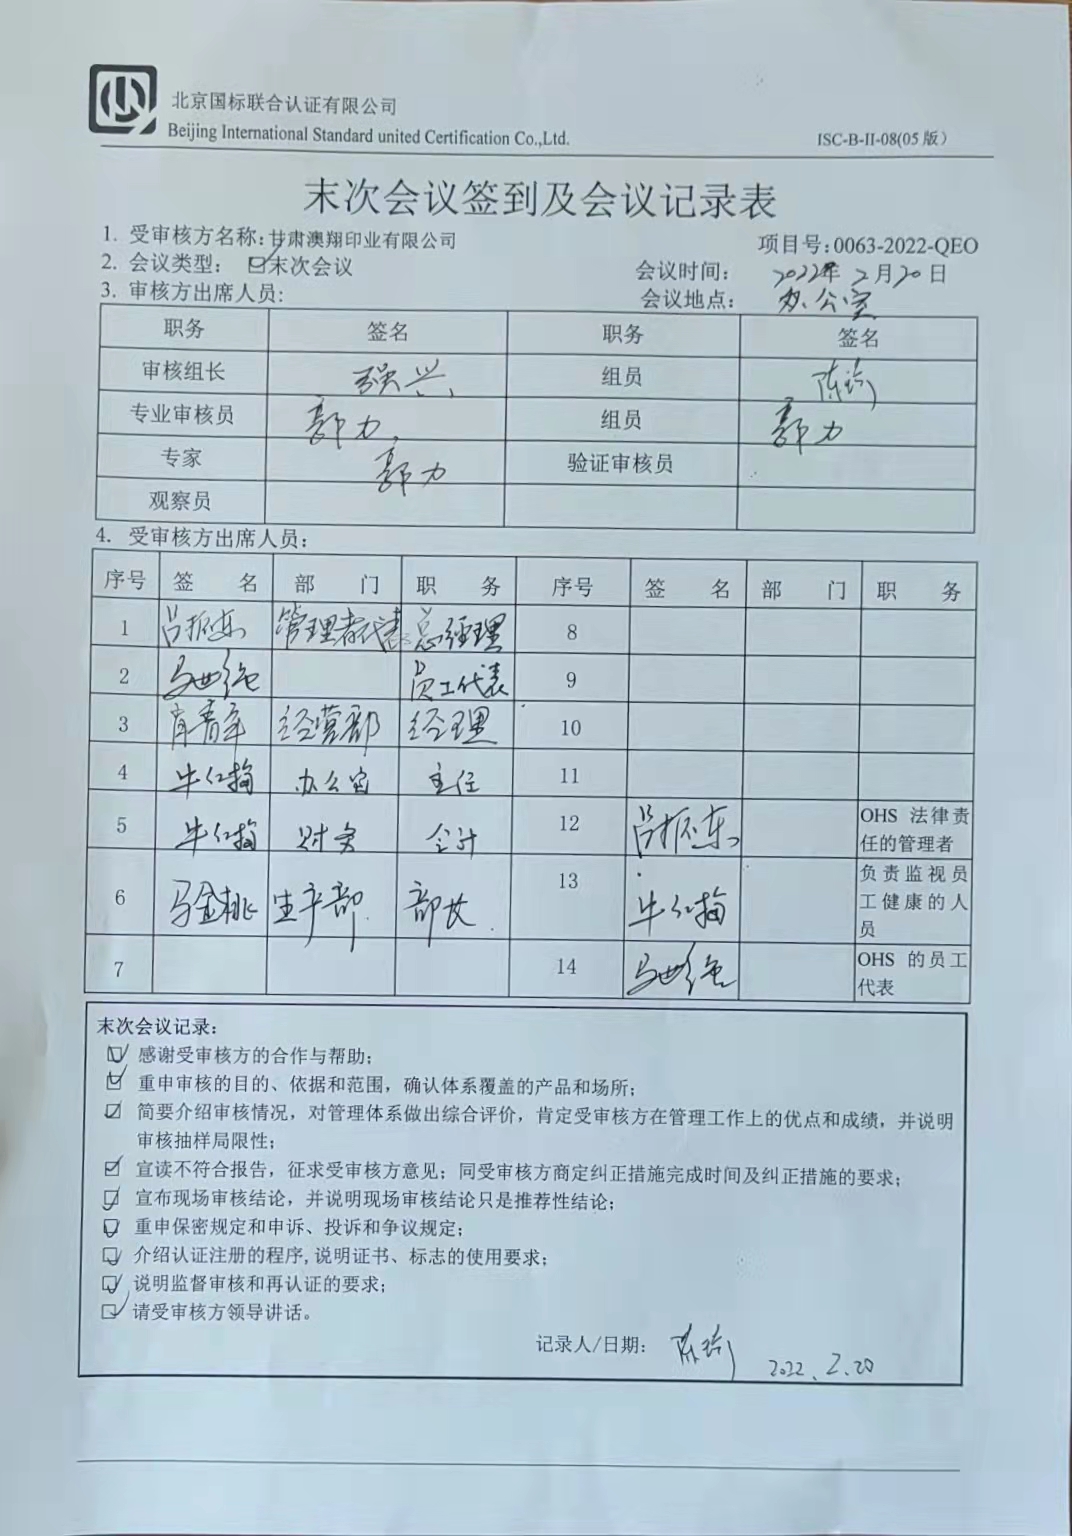 北京国标联合认证有限公司
Beijing International Standard united Certification Co.,Ltd.
ISC-B-II-08(05 版)
末次会议签到及会议记录表
1. 受审核方名称:甘肃澳翔印业有限公司 项目号:0063-2022-QEO
2. 会议类型: 末次会议 会议时间: 2022年 2月20日
3. 审核方出席人员: 会议地点: 办公室
职务 签名 职务 签名
审核组长 强兴 组员
专业审核员 郭力 组员 郭力
专家 郭力 验证审核员
观察员
4. 受审核方出席人员:
序号 签 名 部 门 职 务 序号 签 名 部 门 职 务
1 吕振东 管理者代表 总经理 8
2 员工代表 9
3 肖青年 经营部 经理 10
4 牛红梅 办公室 主任 11
5 牛红梅 财务 会计 12 吕振东 OHS 法律责
任的管理者
6 马金桃 生产部 部长 13 牛红梅 负责监视员
工健康的人
员
7 14 OHS 的员工
代表
末次会议记录:
感谢受审核方的合作与帮助;
重申审核的目的、依据和范围，确认体系覆盖的产品和场所;
简要介绍审核情况，对管理体系做出综合评价，肯定受审核方在管理工作上的优点和成绩，并说明
审核抽样局限性;
宣读不符合报告，征求受审核方意见；同受审核方商定纠正措施完成时间及纠正措施的要求;
宣布现场审核结论，并说明现场审核结论只是推荐性结论;
重申保密规定和申诉、投诉和争议规定;
介绍认证注册的程序,说明证书、标志的使用要求;
说明监督审核和再认证的要求;
请受审核方领导讲话。
记录人/日期: 2022.2.20